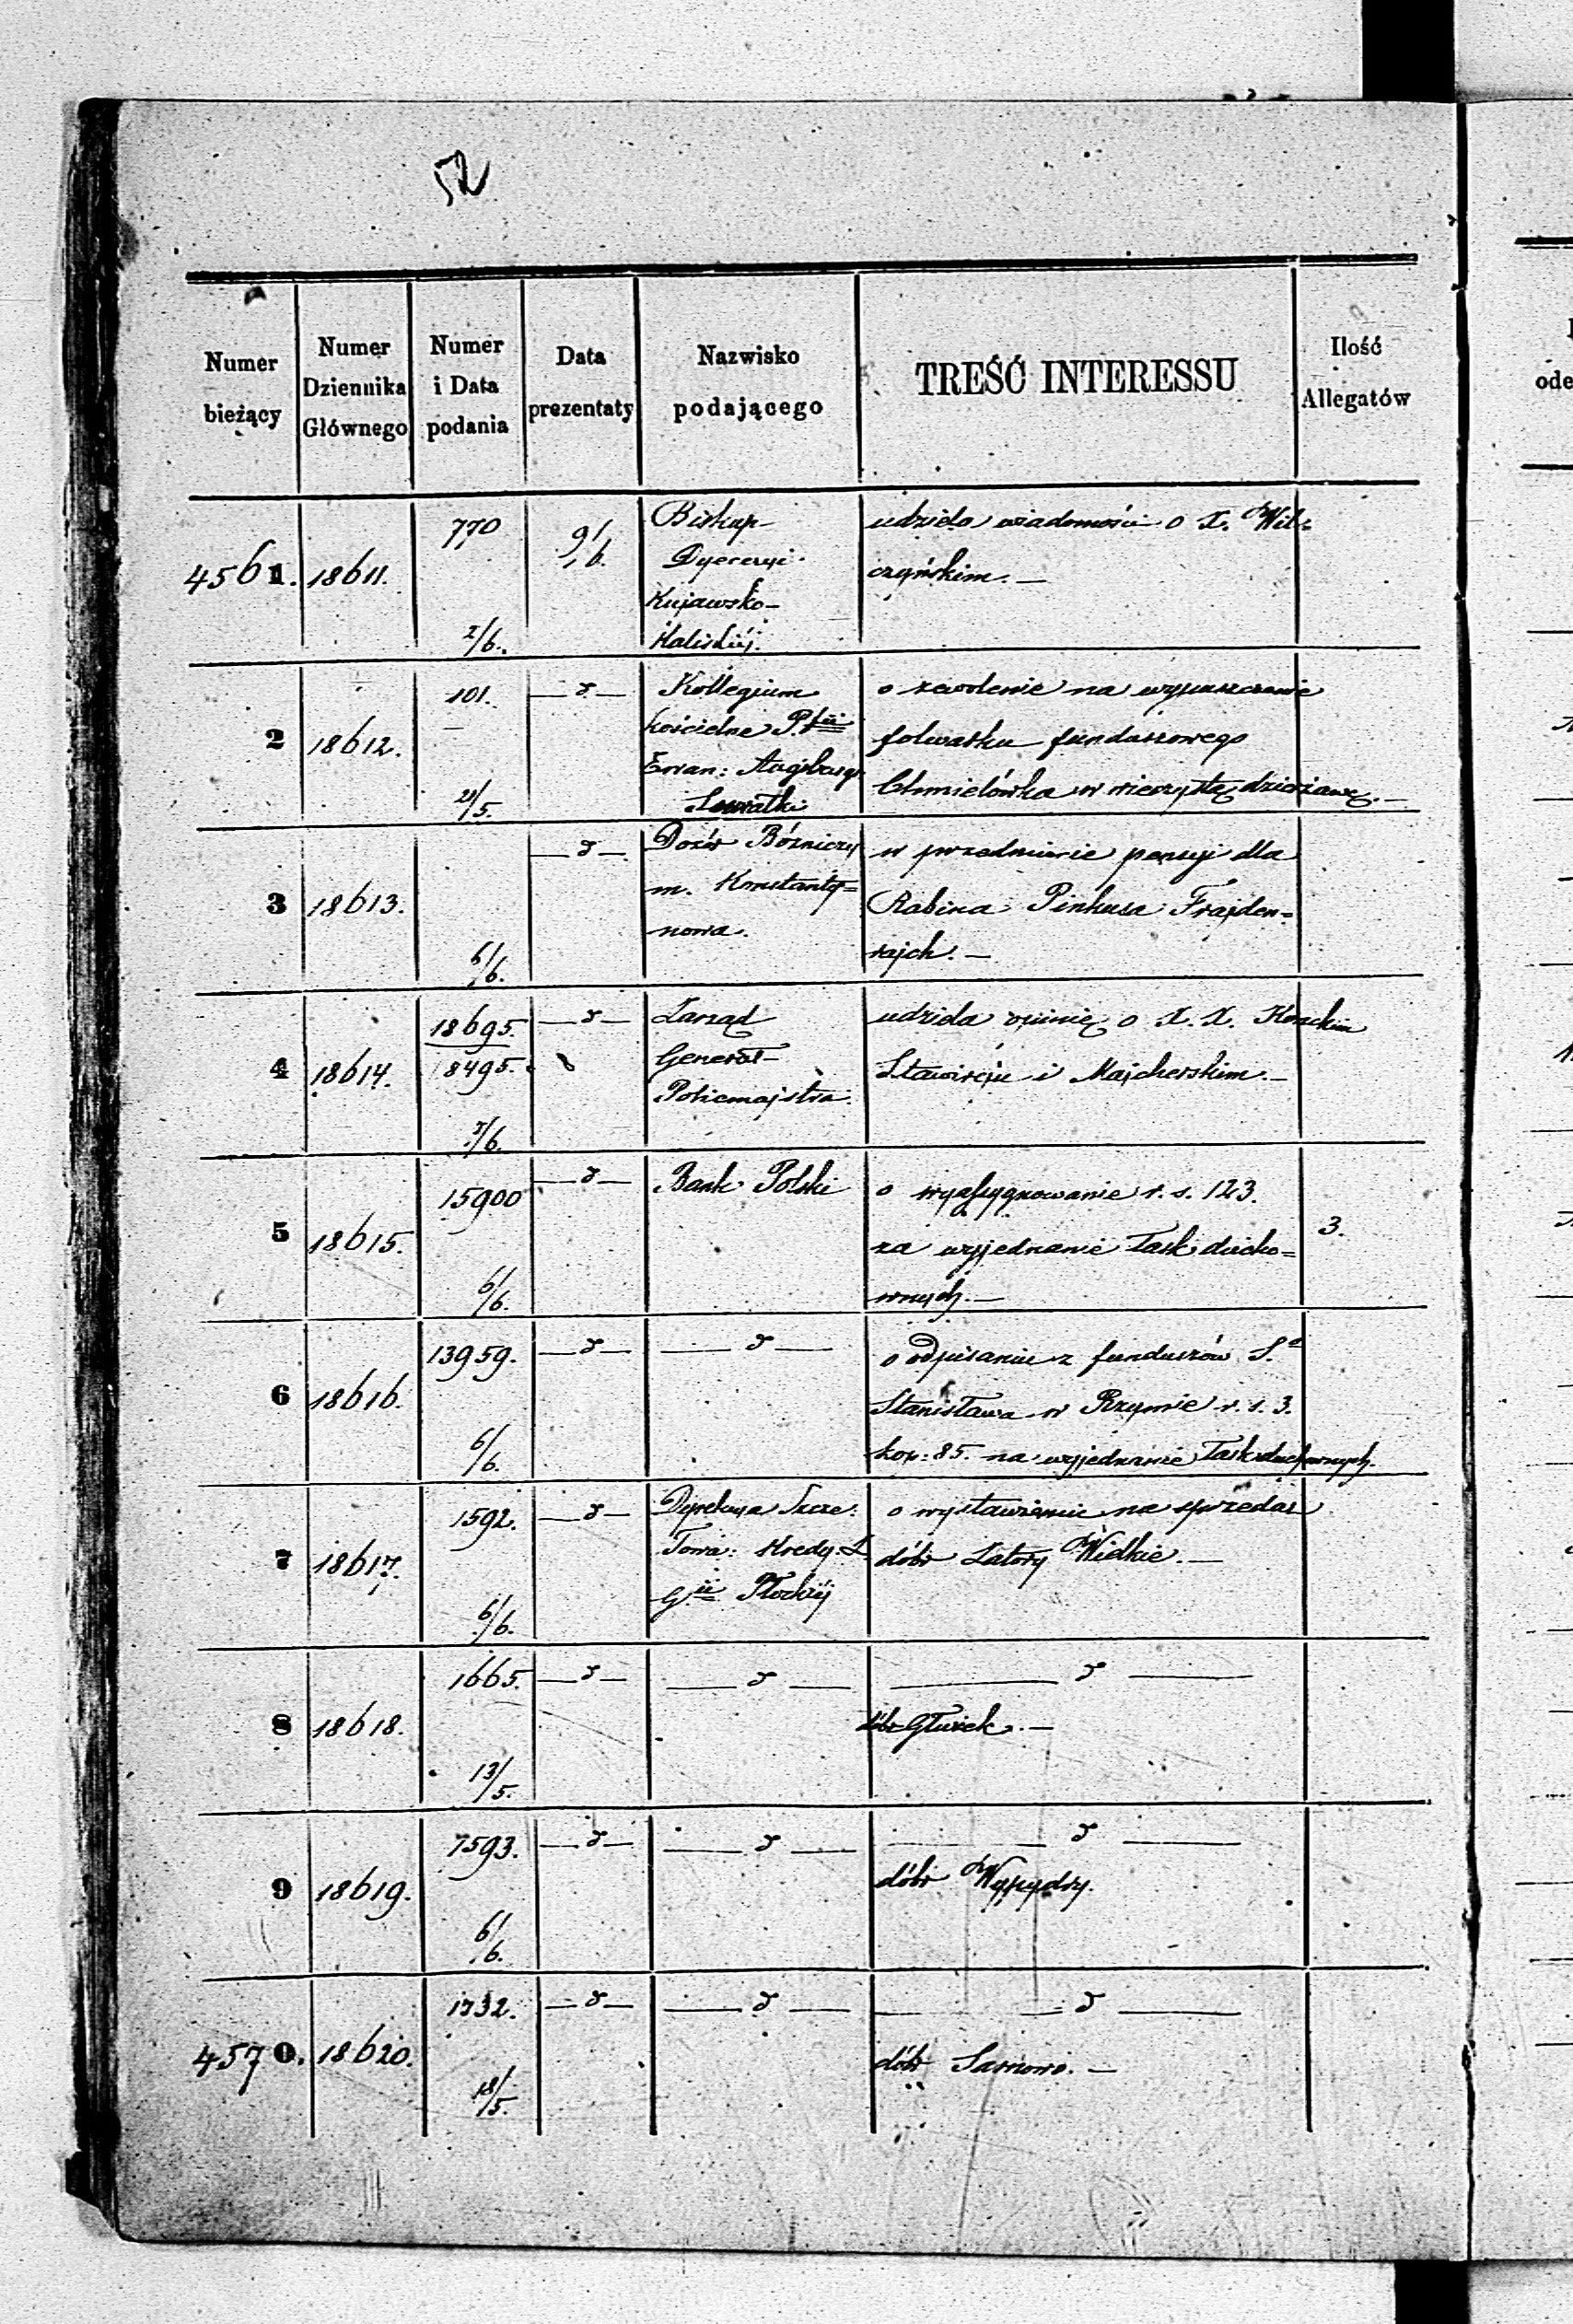 52
Numer bieżący
Numer Dziennika Głównego
Numer i Data podania
Data prezentaty
Nazwisko podającego
TREŚĆ INTERESSU
Ilość Allegatów
4561. 18611. 770 2/6. 9/6.
Biskup
Dyecezyi
Kujawsko-
Kaliskiéj.
udziela wiadomości o X. Wil-
czyńskim. —
2 18612. 101. 21/5. — d —
Kollegium
kościelne P.fii
Ewan: Augsburgs.
Suwałki
o zezwolenie na wypuszczenie
folwarku funduszowego
Chmielówka w wieczystą dzierżawę. —
3 18613. 6/6. — d —
Dozór Bóżniczy
m. Konstanty=
nowa.
w przedmiocie pensyi dla
Rabina Pinkusa Frajden=
rajch. —
4 18614. 18695. 8495. 5/6. — d —
Zarząd
Generał-
Policmajstra.
udziela opinię o X. X.
i Majcherskim. —
5 18615. 15900 6/6. — d —
Bank Polski
o wyasygnowanie r. s. 123.
za wyjednanie łask ducho=
wnych. —
3.
6 18616. 13959. 6/6. — d — — d —
o odpisanie z funduszów S.o
Stanisława w Rzymie r. s. 3.
kop: 85. na wyjednanie łask duchownych.
7 18617. 1592. 6/6. — d —
Dyrekcya Szcze:
Towa: Kredy: Z.
G.ii Płockiéj
o wystawienie na sprzedaż
dóbr Zatory Wielkie. —
8 18618. 1665. 13/5. — d — — d — — d —
dóbr Głużek. —
9 18619. 1593. 6/6. — d — — d — — d —
dóbr Wypychy.
4570. 18620. 1732. 18/5. — d — — d — — d —
dóbr Sarnowo. —